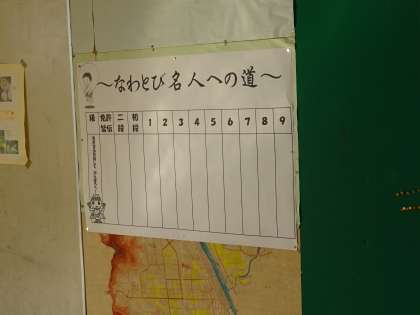 ～なわとび名人への道～
級 免許皆伝 二段 初段 1 2 3 4 5 6 7 8 9